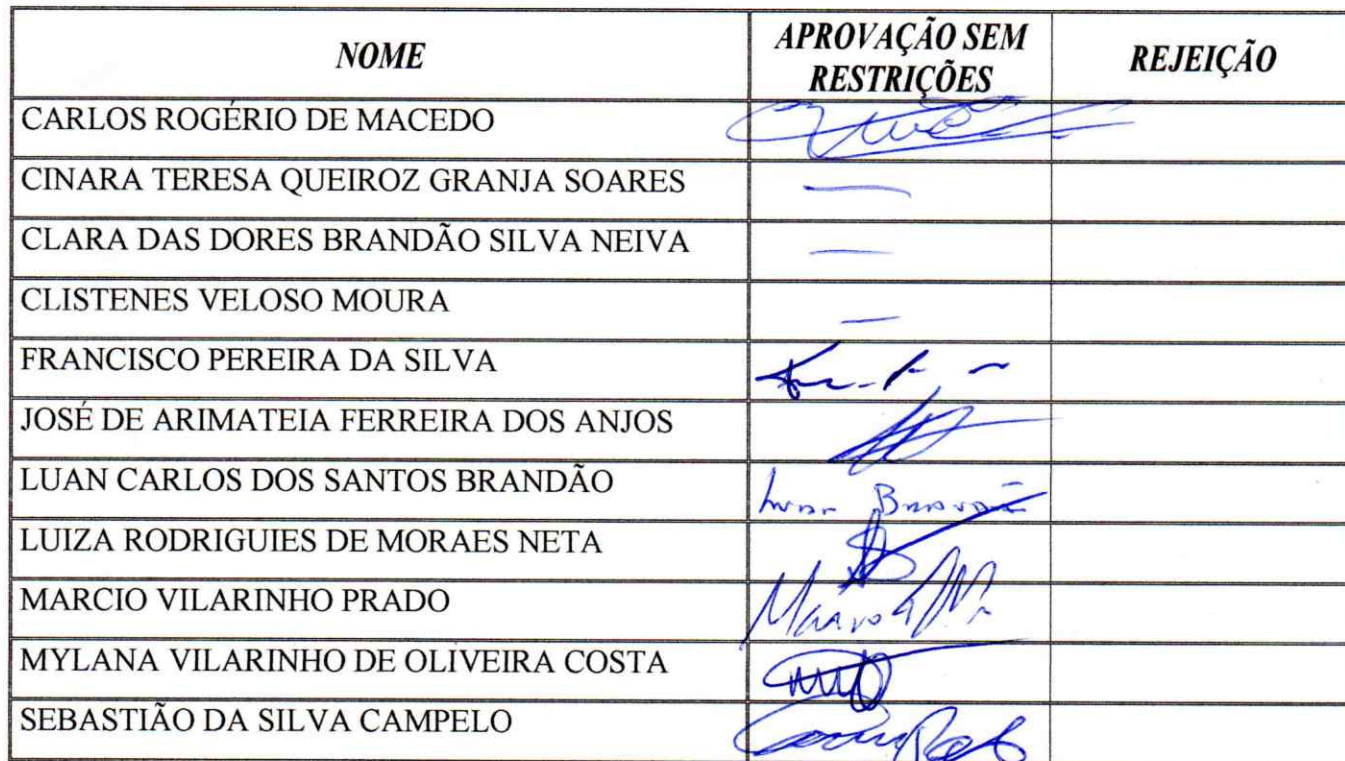 NOME
APROVAÇÃO SEM
RESTRIÇÕES
REJEIÇÃO
CARLOS ROGÉRIO DE MACEDO
CINARA TERESA QUEIROZ GRANJA SOARES
—
CLARA DAS DORES BRANDÃO SILVA NEIVA
—
CLISTENES VELOSO MOURA
—
FRANCISCO PEREIRA DA SILVA
JOSÉ DE ARIMATEIA FERREIRA DOS ANJOS
LUAN CARLOS DOS SANTOS BRANDÃO
LUIZA RODRIGUIES DE MORAES NETA
MARCIO VILARINHO PRADO
MYLANA VILARINHO DE OLIVEIRA COSTA
SEBASTIÃO DA SILVA CAMPELO